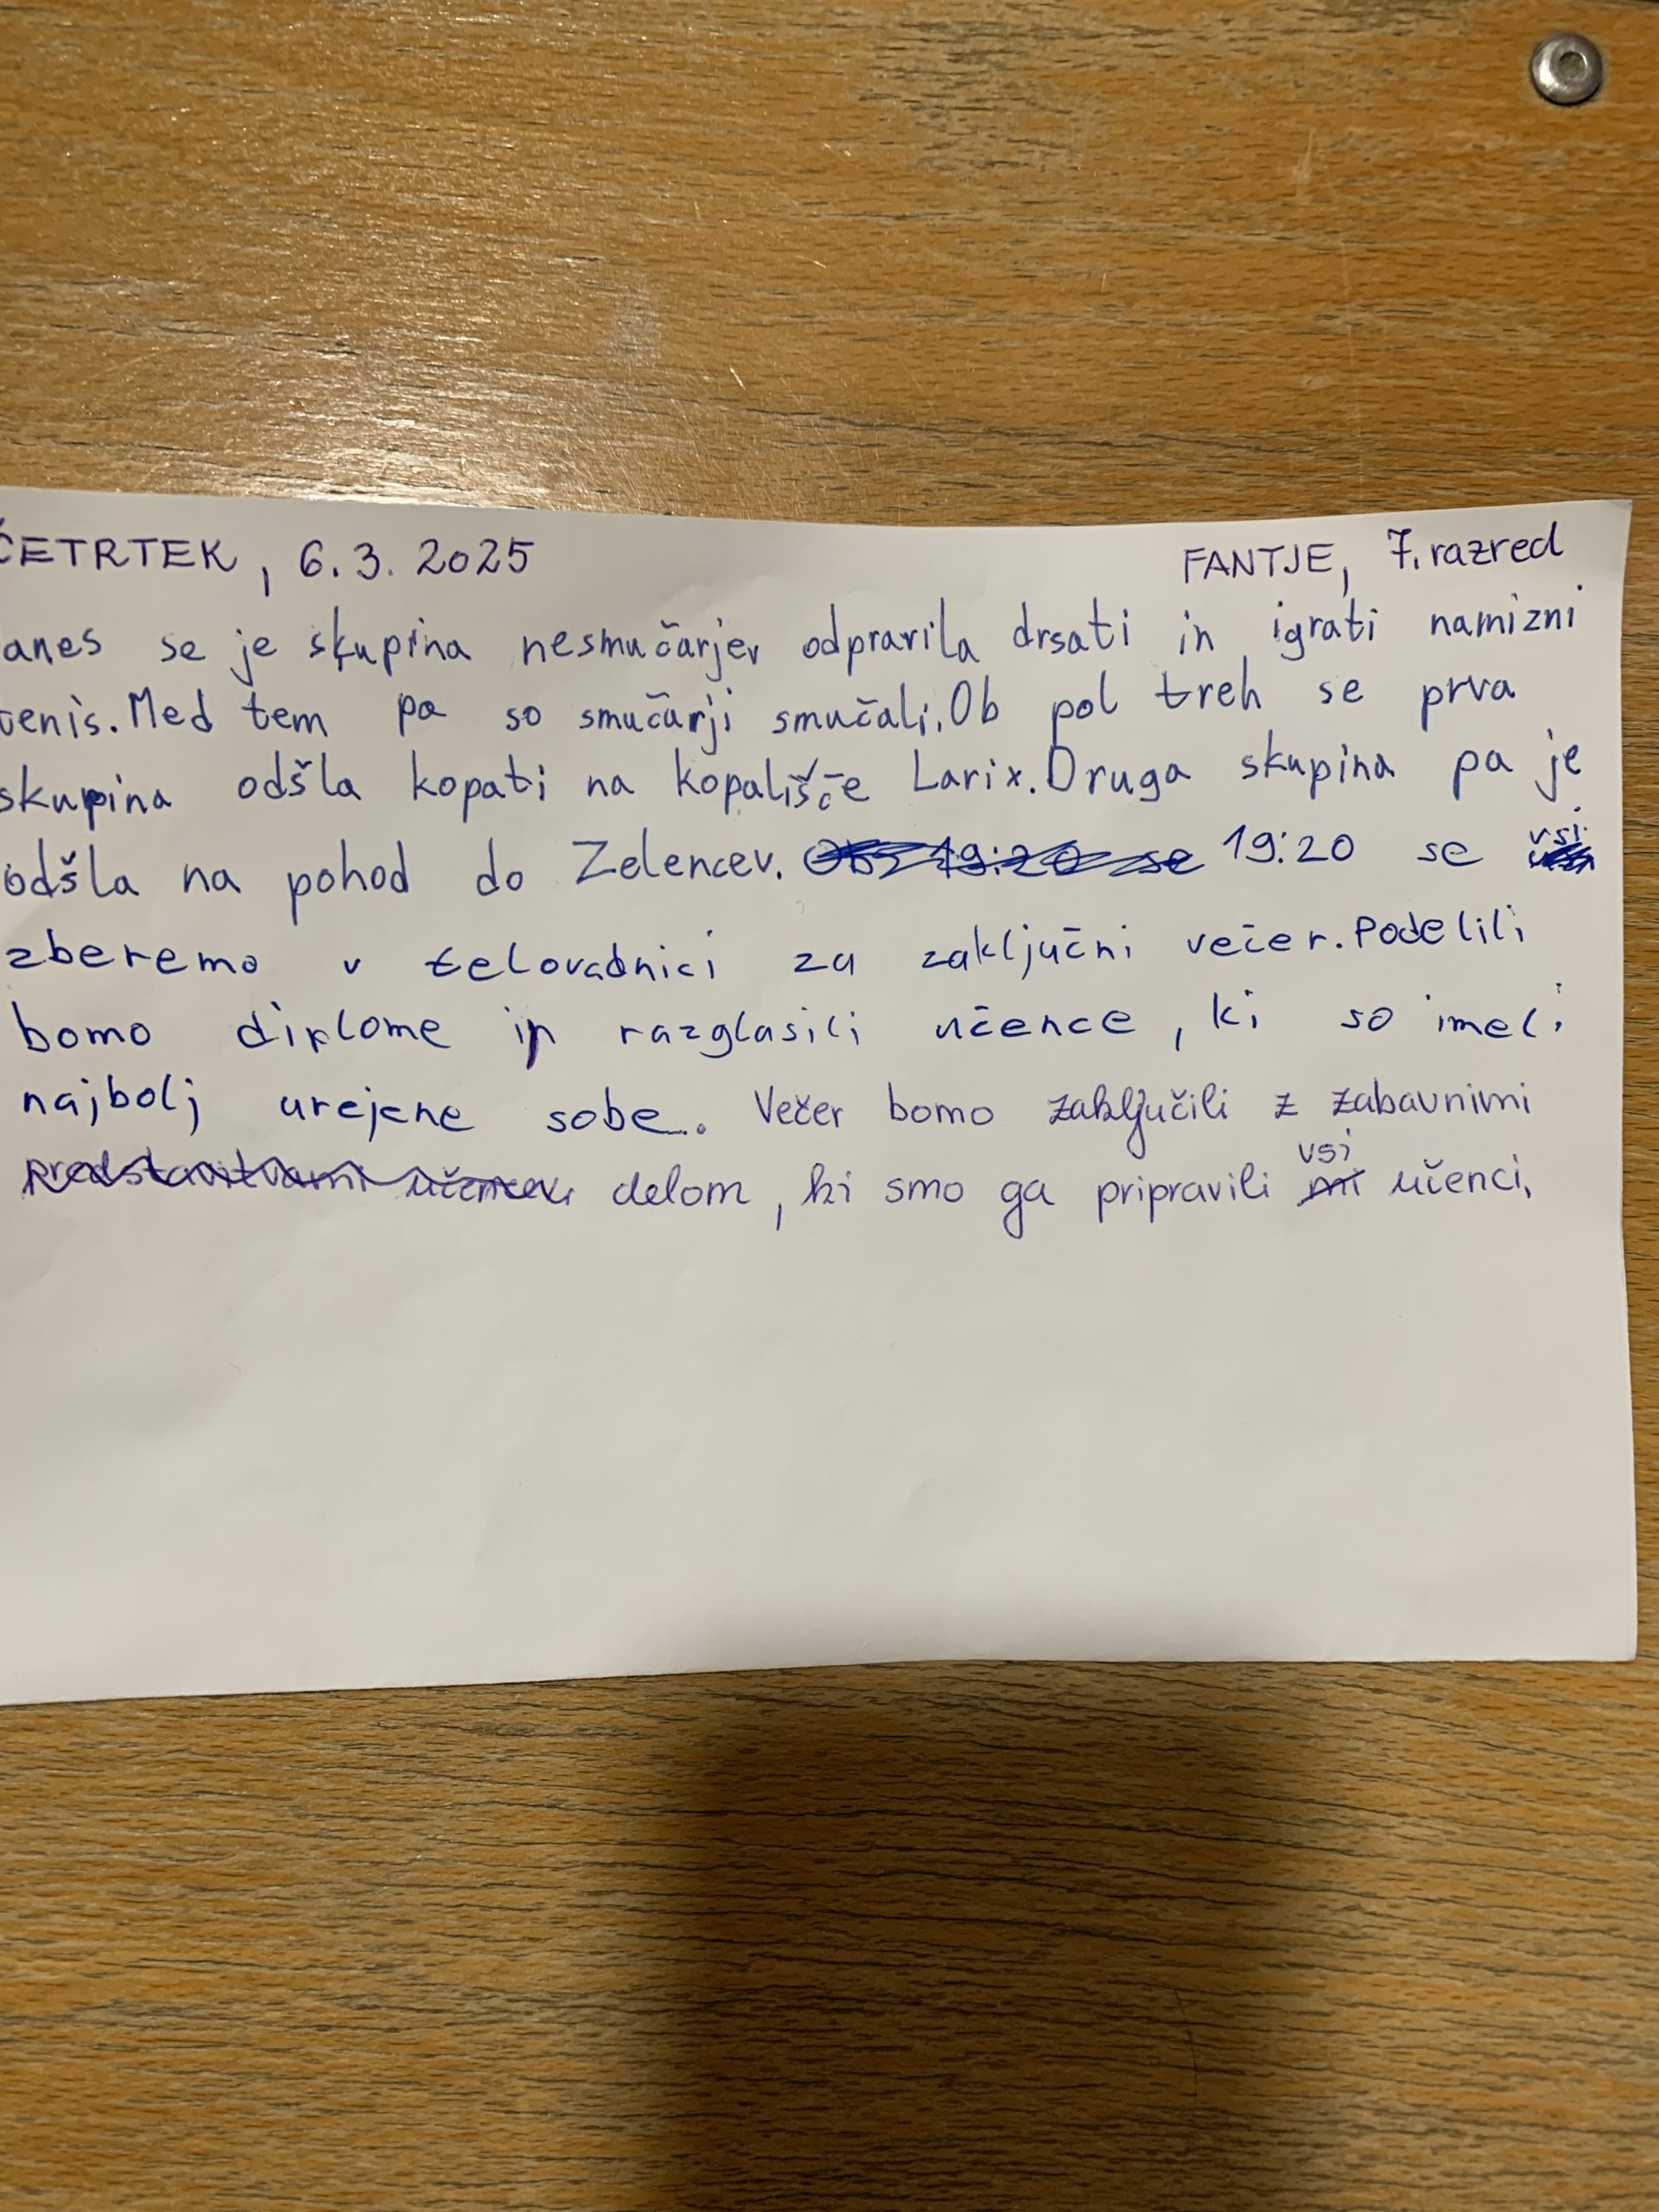 ČETRTEK, 6.3. 2025 FANTJE, 7. razred
anes se je skupina nesmučarjev odpravila drsati in igrati namizni
tenis. Med tem pa so smučarji smučali. Ob pol treh se prva
skupina odšla kopati na kopališče Larix. Druga skupina pa je
odšla na pohod do Zelencev. Ob 19:20 se 19:20 se vsi
zberemo v telovadnici za zaključni večer. Podelili
bomo diplome in razglasili učence, ki so imeli
najbolj urejene sobe. Večer bomo zaključili z zabavnimi
predstavitvami učencev delom, ki smo ga pripravili mi vsi učenci.